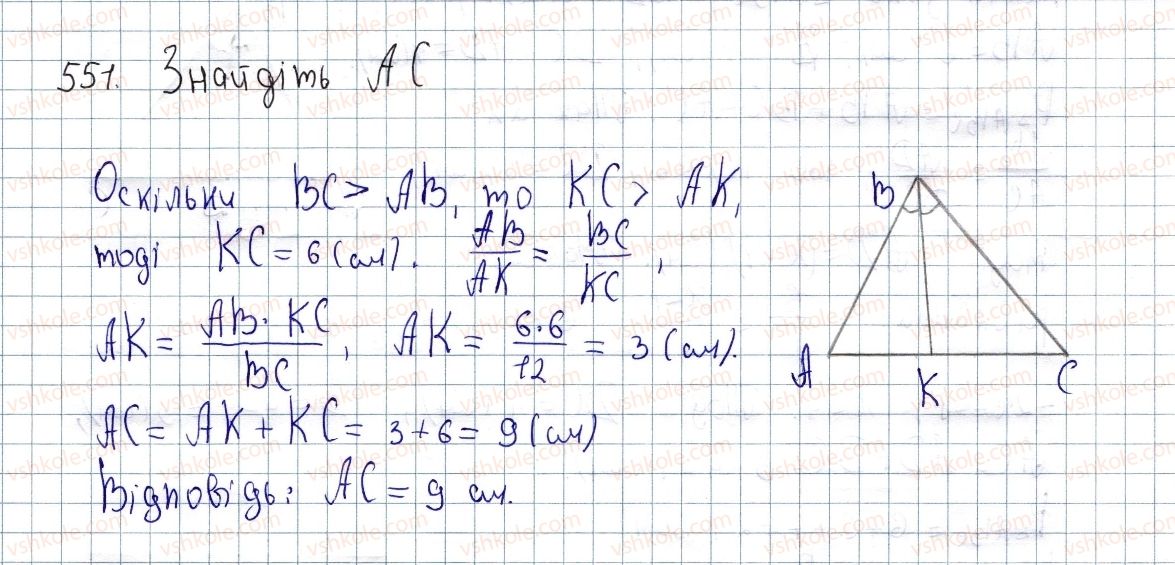 551. Знайдіть AC
Оскільки BC > AB, то KC > AK,
тоді KC = 6 (см). AB/AK = BC/KC,
AK = AB · KC/BC, AK = 6·6/12 = 3 (см).
AC = AK + KC = 3 + 6 = 9 (см)
Відповідь: AC = 9 см.
B
A
K
C
vshkole.com